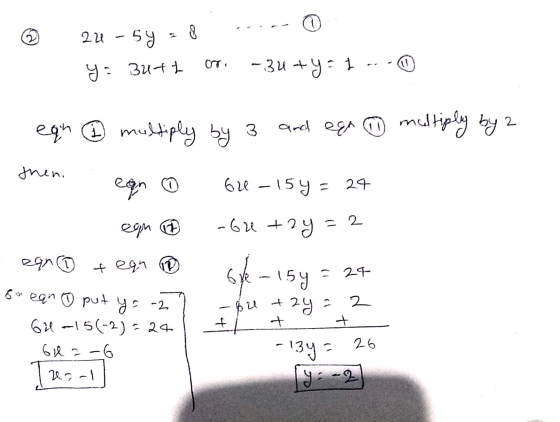 ② 2x - 5y = 8 ------ ①
y = 3x+1 or, -3x+y = 1 --- ⑪
eqn ① multiply by 3 and eqn ⑪ multiply by 2
then.
eqn ① 6x - 15y = 24
eqn ⑪ -6x + 2y = 2
eqn ① + eqn ⑪
6x - 15y = 24
-6x + 2y = 2
+ + +
-13y = 26
y = -2
eqn ① put y = -2
6x - 15(-2) = 24
6x = -6
x = -1